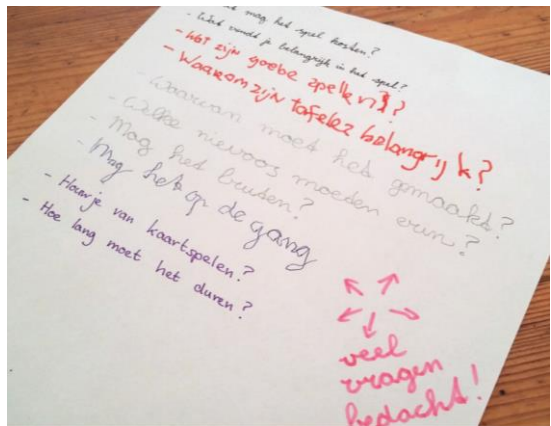 mag het spel kosten?
- Wat vindt je belangrijk in het spel?
- Wat zijn goebe zpelkrs?
- Waarom zijn tafelez belangrijk?
- Waarvan moet het gemaakt?
- Welke nievoos moeten erin?
- Mag het buiten?
- Mag het op de gang
- Houw je van kaartspelen?
- Hoe lang moet het duren?
veel
vragen
bedacht!